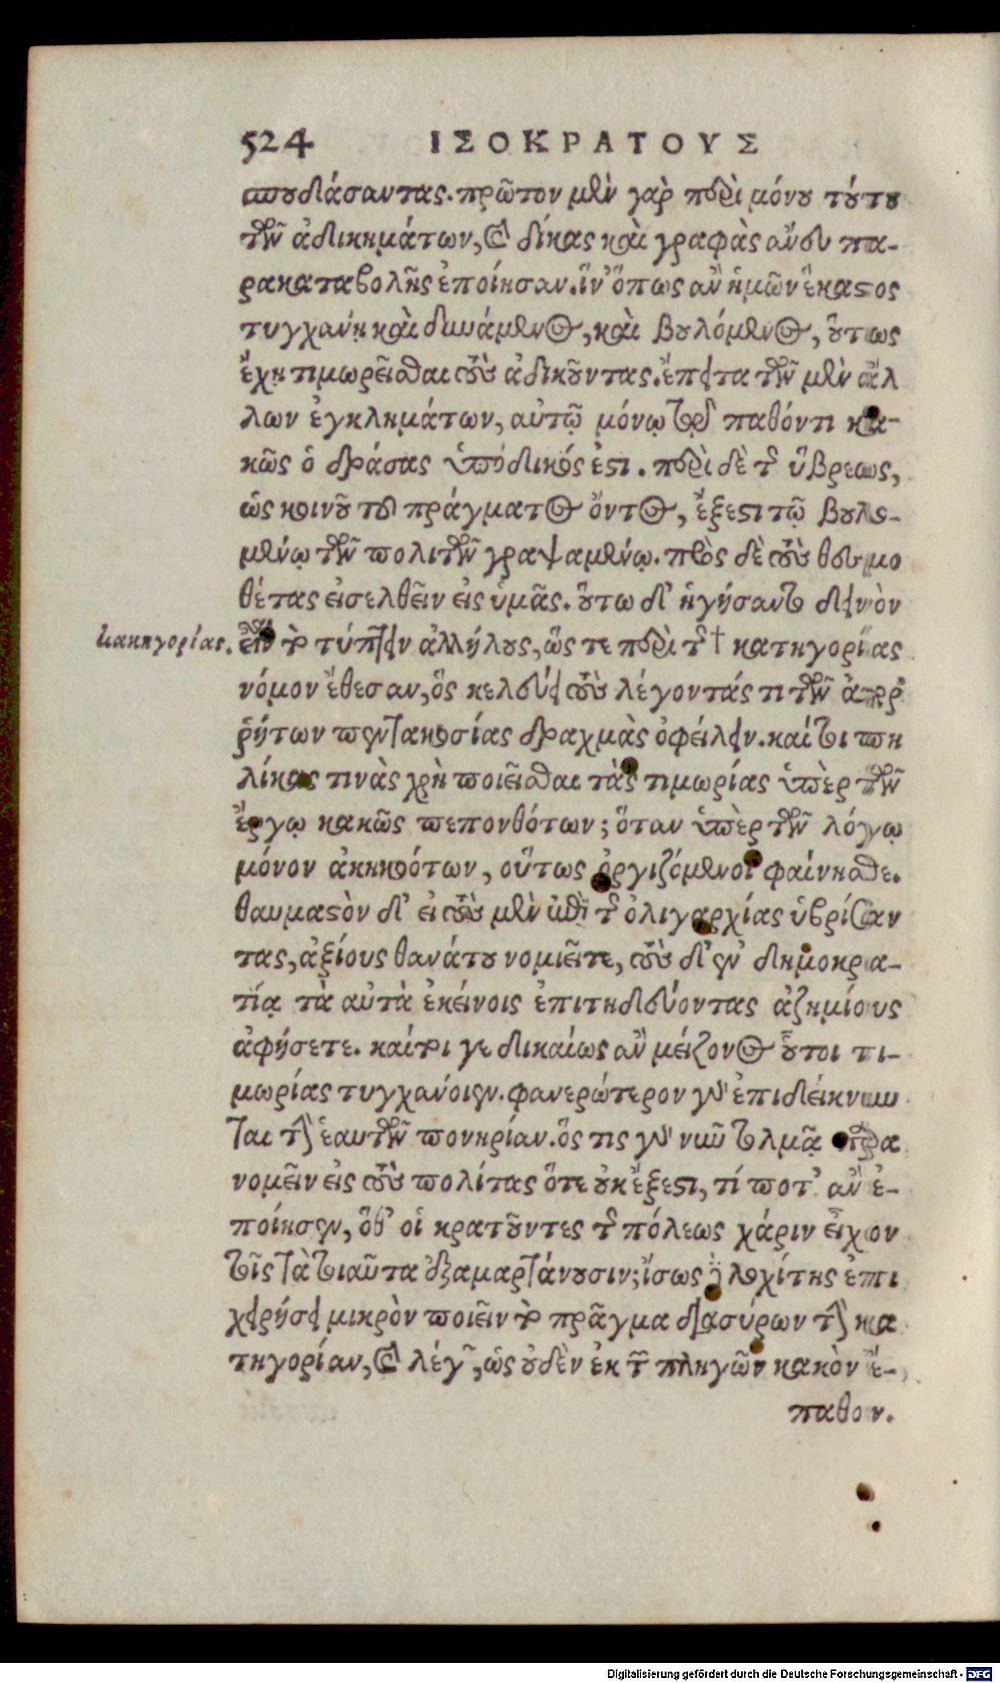 524 ΙΣΟΚΡΑΤΟΥΣ
σπουδάσαντας. πρῶτον μὲν γὰρ περὶ μόνου τούτου
τῶν ἀδικημάτων, καὶ δίκας καὶ γραφὰς ἄνευ πα-
ρακαταβολῆς ἐποίησαν. ἵν' ὅπως ἂν ἡμῶν ἕκαστος
τυγχάνῃ καὶ δυνάμενος, καὶ βουλόμενος, οὕτως
ἔχῃ τιμωρεῖσθαι τοὺς ἀδικοῦντας. ἔπειτα τῶν μὲν ἄλ
λων ἐγκλημάτων, αὐτῷ μόνῳ τῷ παθόντι κα-
κῶς ὁ δράσας ὑπόδικός ἐστι. περὶ δὲ τῆς ὕβρεως,
ὡς κοινοῦ τοῦ πράγματος ὄντος, ἔξεστι τῷ βουλο-
μένῳ τῶν πολιτῶν γραψαμένῳ. πρὸς δὲ τοὺς θεσμο
θέτας εἰσελθεῖν εἰς ὑμᾶς. οὕτω δ' ἡγήσαντο δεινὸν
κακηγορίας. εἶναι τὸ τύπτειν ἀλλήλους, ὥς τε περὶ τῆς † κατηγορίας
νόμον ἔθεσαν, ὃς κελεύει τοὺς λέγοντάς τι τῶν ἀπορ
ῥήτων πεντακοσίας δραχμὰς ὀφείλειν. καί τοι πη
λίκας τινὰς χρὴ ποιεῖσθαι τὰς τιμωρίας ὑπὲρ τῶν
ἔργῳ κακῶς πεπονθότων; ὅταν ὑπὲρ τῶν λόγῳ
μόνον ἀκηκοότων, οὕτως ὀργιζόμενοι φαίνησθε.
θαυμαστὸν δ' εἰ τοὺς μὲν ἐπὶ τῆς ὀλιγαρχίας ὑβρίσαν
τας, ἀξίους θανάτου νομιεῖτε, τοὺς δ' ἐν δημοκρα-
τίᾳ τὰ αὐτὰ ἐκείνοις ἐπιτηδεύοντας ἀζημίους
ἀφήσετε. καίτοι γε δικαίως ἂν μείζονος οὗτοι τι-
μωρίας τυγχάνοιεν. φανερώτερον γὰρ ἐπιδείκνυν
ται τὴν ἑαυτῶν πονηρίαν. ὅς τις γὰρ νῦν τολμᾷ παρα
νομεῖν εἰς τοὺς πολίτας ὅτε οὐκ ἔξεστι, τί ποτ' ἂν ἐ-
ποίησεν, ὅθ' οἱ κρατοῦντες τῆς πόλεως χάριν εἶχον
τοῖς τὰ τοιαῦτα ἐξαμαρτάνουσιν; ἴσως ὁ λοχίτης ἐπι
χειρήσει μικρὸν ποιεῖν τὸ πρᾶγμα διασύρων τὴν κα
τηγορίαν, καὶ λέγειν, ὡς οὐδὲν ἐκ τῶν πληγῶν κακὸν ἔ-
παθον.
Digitalisierung gefördert durch die Deutsche Forschungsgemeinschaft - DFG